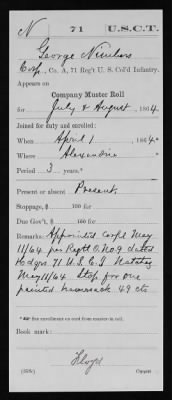 N 71 U.S.C.T.
George Nimbers
Corp., Co. A, 71 Reg't U. S. Col'd Infantry.
Appears on
Company Muster Roll
for July & August, 1864.
Joined for duty and enrolled:
When April 1, 1864*
Where Alexandria
Period 3 years.
Present or absent Present
Stoppage, $ 100 for
Due Gov't, $ 100 for
Remarks: Appointed Corpl May
11/64 per Regtl O. No. 9 dated
Hdqrs 71 U.S.C.I. Natchez
May 11/64 Stop for one
painted haversack 49 cts
* See enrollment on card from muster-in roll.
Book mark:
Lloyd
Copyist.